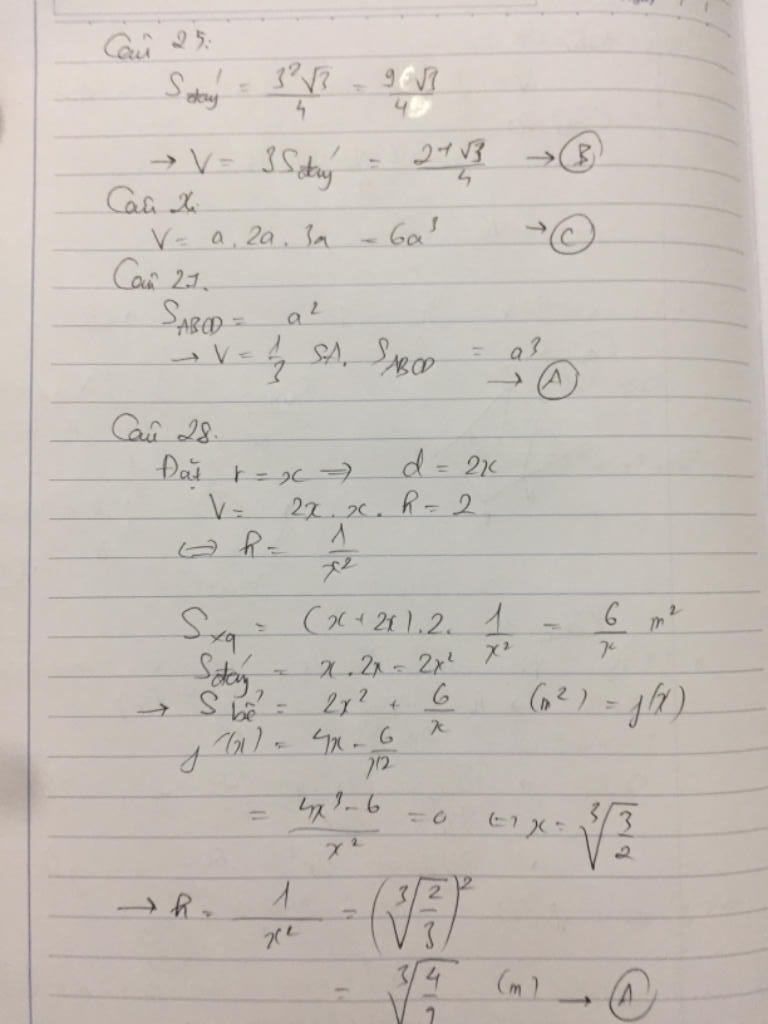 Câu 25:
S đáy = 3²√3/4 = 9√3/4
→ V = 3S đáy = 27√3/4 → B
Câu
V = a.2a.3a = 6a³ → C
Câu 27.
S_ABCD = a²
→ V = 1/3 SA. S_ABCD = a³
→ A
Câu 28.
Đặt r = x ⇒ d = 2x
V = 2x.x.h = 2
⇔ h = 1/x²
S_xq = (x+2x).2. 1/x² = 6/x m²
S đáy = x.2x = 2x²
→ S bể = 2x² + 6/x (m²) = f(x)
f'(x) = 4x - 6/x²
= (4x³-6)/x² = 0 ⇔ x = ∛(3/2)
→ h = 1/x² = (∛(2/3))²
= ∛(4/9) (m) → A